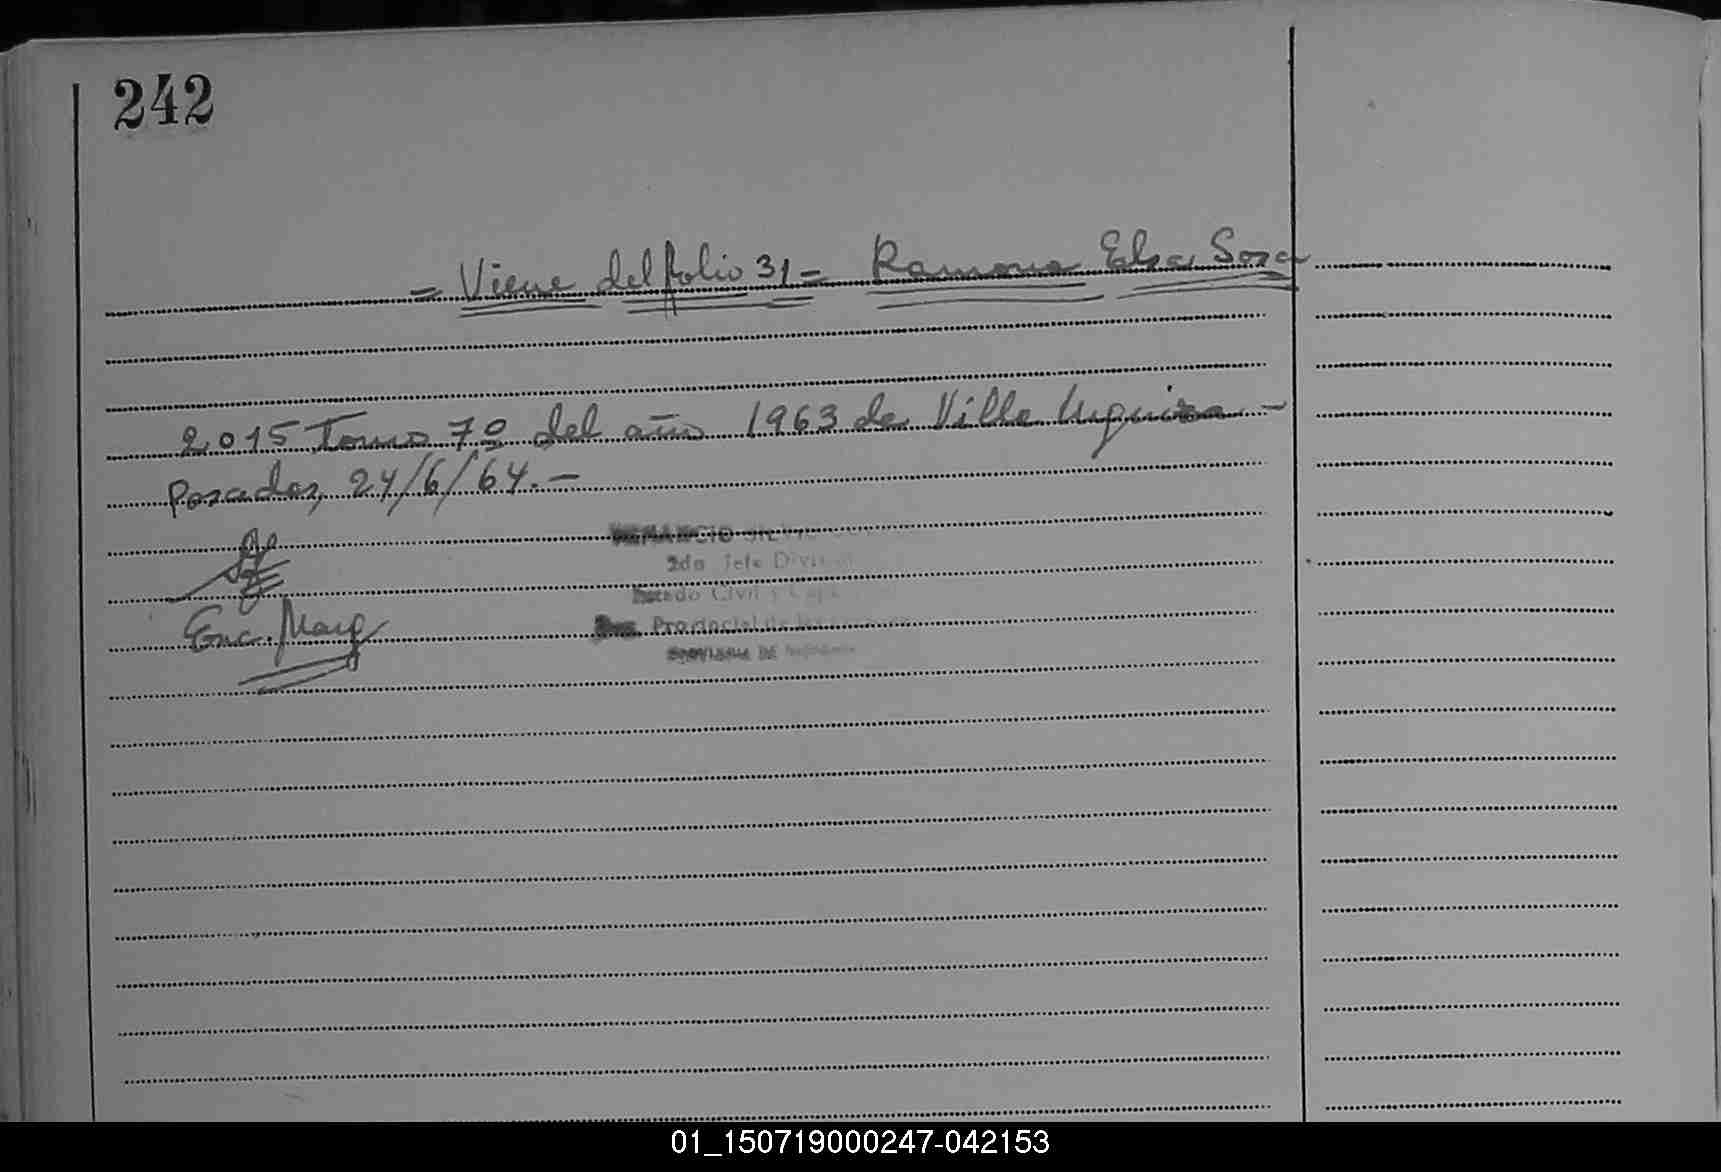 242
= Viene del folio 31 = Ramona Elsa Sosa
2015 Tomo 7º del año 1963 de Villa Urquiza -
Posadas, 24/6/64. -
Enc. Marg
2do Jefe
Civil y
Provincial de
01_150719000247-042153